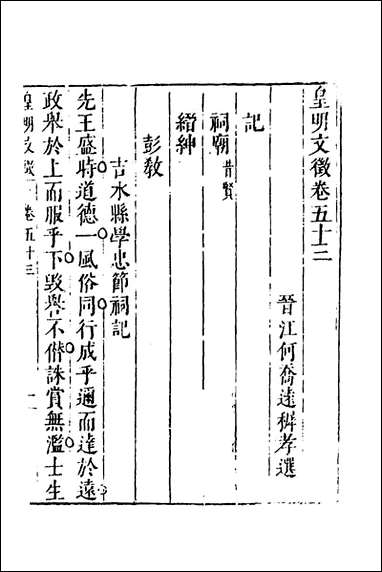 皇明文徵卷五十三
晉江何喬遠稺孝選
記
祠廟 昔賢
縉紳
彭敎
吉水縣學忠節祠記
先王盛時道德一風俗同行成乎邇而達於遠
政舉於上而服乎下毀譽不僭誅賞無濫士生
皇明文徵 卷五十三 一